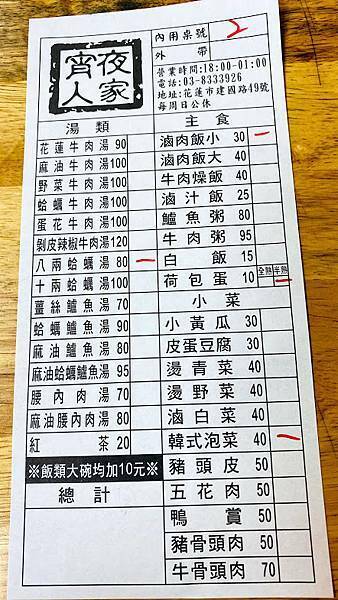 宵夜
人家
內用桌號 2
外帶
營業時間:18:00-01:00
電話:03-8333926
地址:花蓮市建國路49號
每周日公休
湯類
花蓮牛肉湯 90
麻油牛肉湯100
野菜牛肉湯100
蛤蠣牛肉湯100
蛋花牛肉湯100
剝皮辣椒牛肉湯120
八兩蛤蠣湯 80 一
十兩蛤蠣湯100
薑絲鱸魚湯 70
蛤蠣鱸魚湯 90
麻油鱸魚湯 80
麻油蛤蠣鱸魚湯 95
腰內肉湯 70
麻油腰內肉湯 80
紅茶 20
※飯類大碗均加10元※
總計
主食
滷肉飯小 30 一
滷肉飯大 40
牛肉燥飯 40
滷汁飯 25
鱸魚粥 80
牛肉粥 95
白飯 15
荷包蛋 10 全熟 半熟 一
小菜
小黃瓜 30
皮蛋豆腐 30
燙青菜 40
燙野菜 40
滷白菜 40
韓式泡菜 40 一
豬頭皮 50
五花肉 50
鴨賞 50
豬骨頭肉 50
牛骨頭肉 70